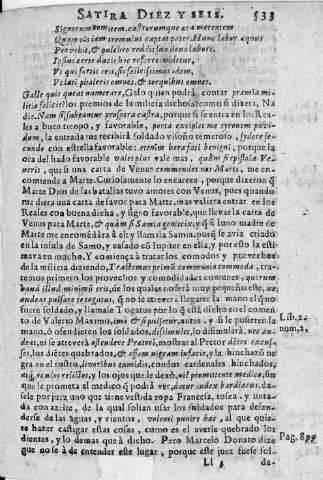 SATIRA DIEZ Y SEIS. 533
Signorum comitem, castrorumque ara merentem
Quamvis iam tremulus captat pater. Hunc labor equus
Provehit, & pulchro reddit sua dona labori.
Ipsius certe ducis hoc referre videtur,
Vt qui fortis erit, sit felicissimus idem,
Vt læti phaleris omnes, & torquibus omnes.
Galle quis quæat numerare, Galo quien podrà contar præmia mi-
litiæ felicis? los premios de la milicia dichosa? como si dixera, Na
die. Nam si subeamus prospera castra, porque si se entra en los Rea-
les a buen tiempo, y favorable, porta excipiat me tyronem pavi-
dum, la entrada me recibirà soldado visoño temeroso, sydere se-
cundo con estrella favorable: etenim hora fati benigni, porque la
ora del hado favorable valet plus vale mas, quàm si epistola Ve-
neris, que si una carta de Venus commendet nos Marti, me en-
comiende a Marte. Curiosamente lo encarece, porque dixeron q̃
Marte Dios de las batallas tuvo amores con Venus, pues quando
me diera una carta de favor para Marte, mas valiera entrar en los
Reales con buena dicha, y signo favorable, que llevar la carta de
Venus para Marte, & quàm si Samia genitrix, y q̃ si Iuno madre de
Marte me encomẽdàra à el, y llamala Samia, porq̃ se avia criado
en la insula de Samo, y casado cõ Iupiter en ella, y por esto la esti
mava en mucho. Y comiença à tratar los comodos y provechos
de la milicia diziendo, Tractemus primùm communia commoda, tra-
temos primero los provechos y comodidades comunes, quorum
haud illud minimũ erit, de los quales no serà muy pequeño este, ne
audeat pulsare te togatus, q̃ no se atreverà llegarte la mano el q̃ no
fuere soldado, y llamale Togatus por lo q̃ està dicho en el comen-
to de Valerio Maximo, imò & si pulsetur, antes, y si le pusieren la
mano, ò ofendieren los soldados, dissimulet, lo dissimularà, nec au-
deat, ni se atreverà ostendere Prætori, mostrar al Pretor dẽtes excus-
sos, los diẽtes quebrados, & offam nigram in facie, y la hinchazõ ne
gra en el rostro, livoribus tumidis, con los cardenales hinchados,
atq; oculos relictos, y los ojos que le dexò, nil promittente medico, sin
que le prometa el medico q̃ podrà ver, datur iudex bardiacus, da-
sele por juez uno que tiene vestida ropa Francesa, tosca, y unta-
da con azeite, de la qual solian usar los soldados para defen-
derse de las aguas, y vientos, volenti punire hæc, al que quie-
re hazer castigar estas cosas, como es el averle quebrado los
dientes, y lo demas que à dicho. Pero Marcelo Donato dize
que no se à de entender este lugar, porque este juez fuese sol-
Lib. 2.
num. 2,
Pag. 899
Ll 3 da-